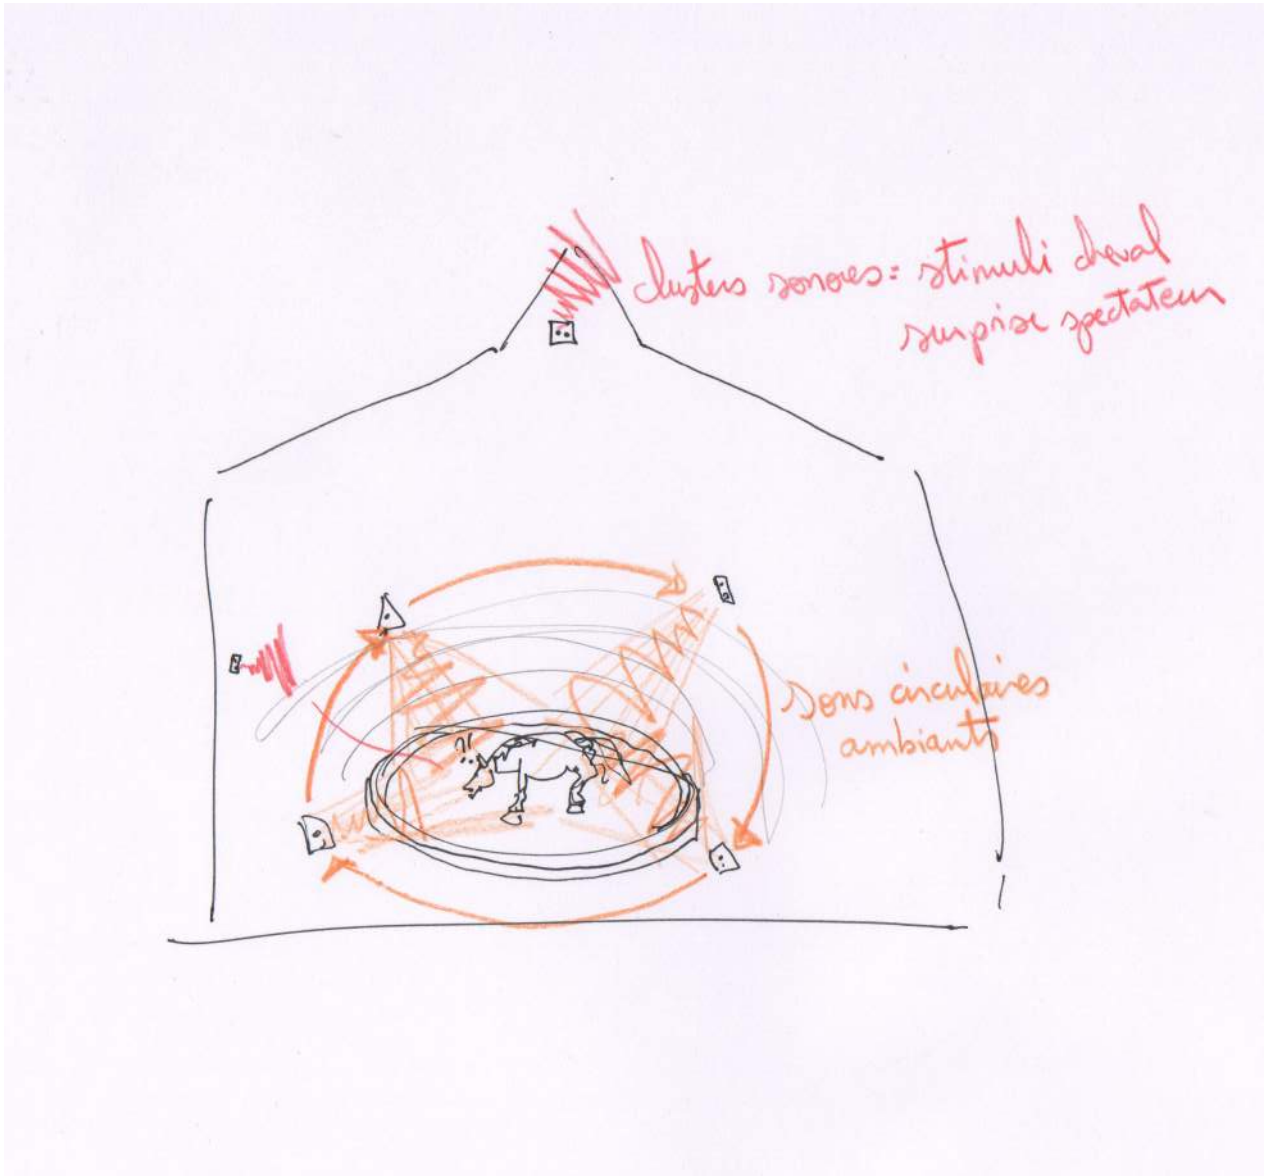 clusters sonores: stimuli cheval
surprise spectateur
sons circulaires
ambiants